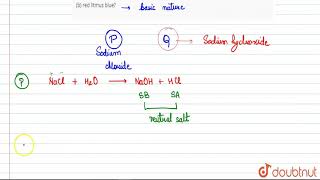 (b) red litmus blue? → basic nature
P Q → Sodium hydroxide
Sodium
chloride
? NaCl + H₂O → NaOH + HCl
SB SA
neutral salt
doubtnut